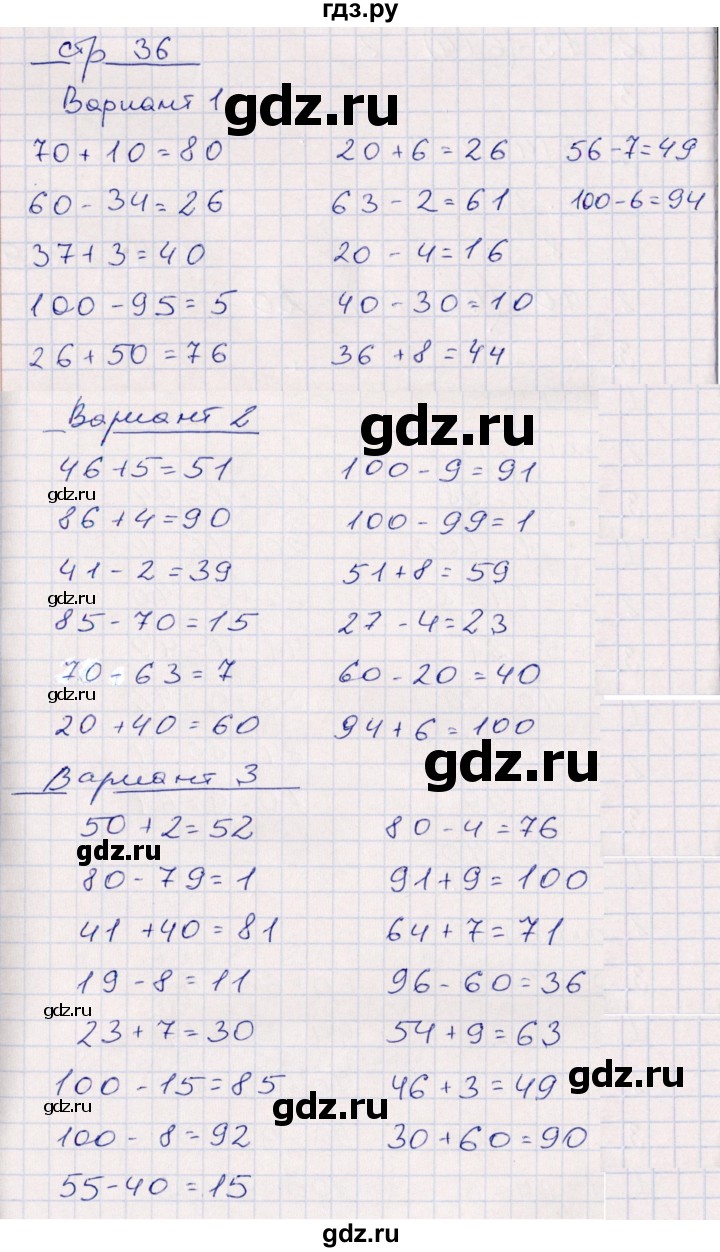 гдз.ру
стр 36
Вариант 1
gdz.ru
70 + 10 = 80 20 + 6 = 26 56 - 7 = 49
60 - 34 = 26 63 - 2 = 61 100 - 6 = 94
37 + 3 = 40 20 - 4 = 16
100 - 95 = 5 40 - 30 = 10
26 + 50 = 76 36 + 8 = 44
Вариант 2
gdz.ru
46 + 5 = 51 100 - 9 = 91
gdz.ru
86 + 4 = 90 100 - 99 = 1
41 - 2 = 39 51 + 8 = 59
gdz.ru
85 - 70 = 15 27 - 4 = 23
70 - 63 = 7 60 - 20 = 40
gdz.ru
20 + 40 = 60 94 + 6 = 100
gdz.ru
Вариант 3
50 + 2 = 52 80 - 4 = 76
gdz.ru
80 - 79 = 1 91 + 9 = 100
41 + 40 = 81 64 + 7 = 71
19 - 8 = 11 96 - 60 = 36
gdz.ru
23 + 7 = 30 54 + 9 = 63
gdz.ru
100 - 15 = 85 46 + 3 = 49
gdz.ru
gdz.ru
100 - 8 = 92 30 + 60 = 90
55 - 40 = 15
gdz.ru